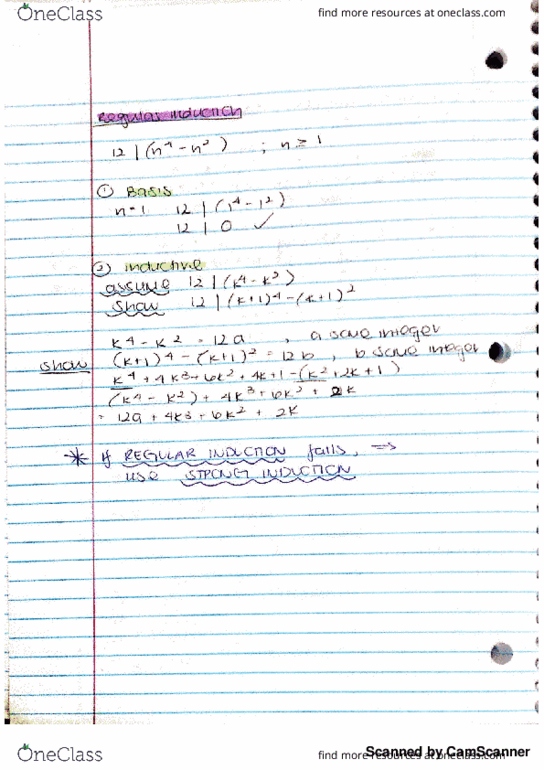 OneClass
find more resources at oneclass.com
Regular Induction
12 | (n⁴ - n²) ; n ≥ 1
① Basis
n=1 12 | (1⁴ - 1²)
12 | 0 ✓
② inductive
assume 12 | (k⁴ - k²)
Show 12 | (k+1)⁴ - (k+1)²
k⁴ - k² = 12a , a some integer
show (k+1)⁴ - (k+1)² = 12b , b some integer
k⁴ + 4k³ + 6k² + 4k + 1 - (k² + 2k + 1)
(k⁴ - k²) + 4k³ + 6k² + 2k
= 12a + 4k3 + 6k² + 2k
* if REGULAR INDUCTION fails, ⇒
use STRONG INDUCTION
OneClass
find more resources at oneclass.com
Scanned by CamScanner